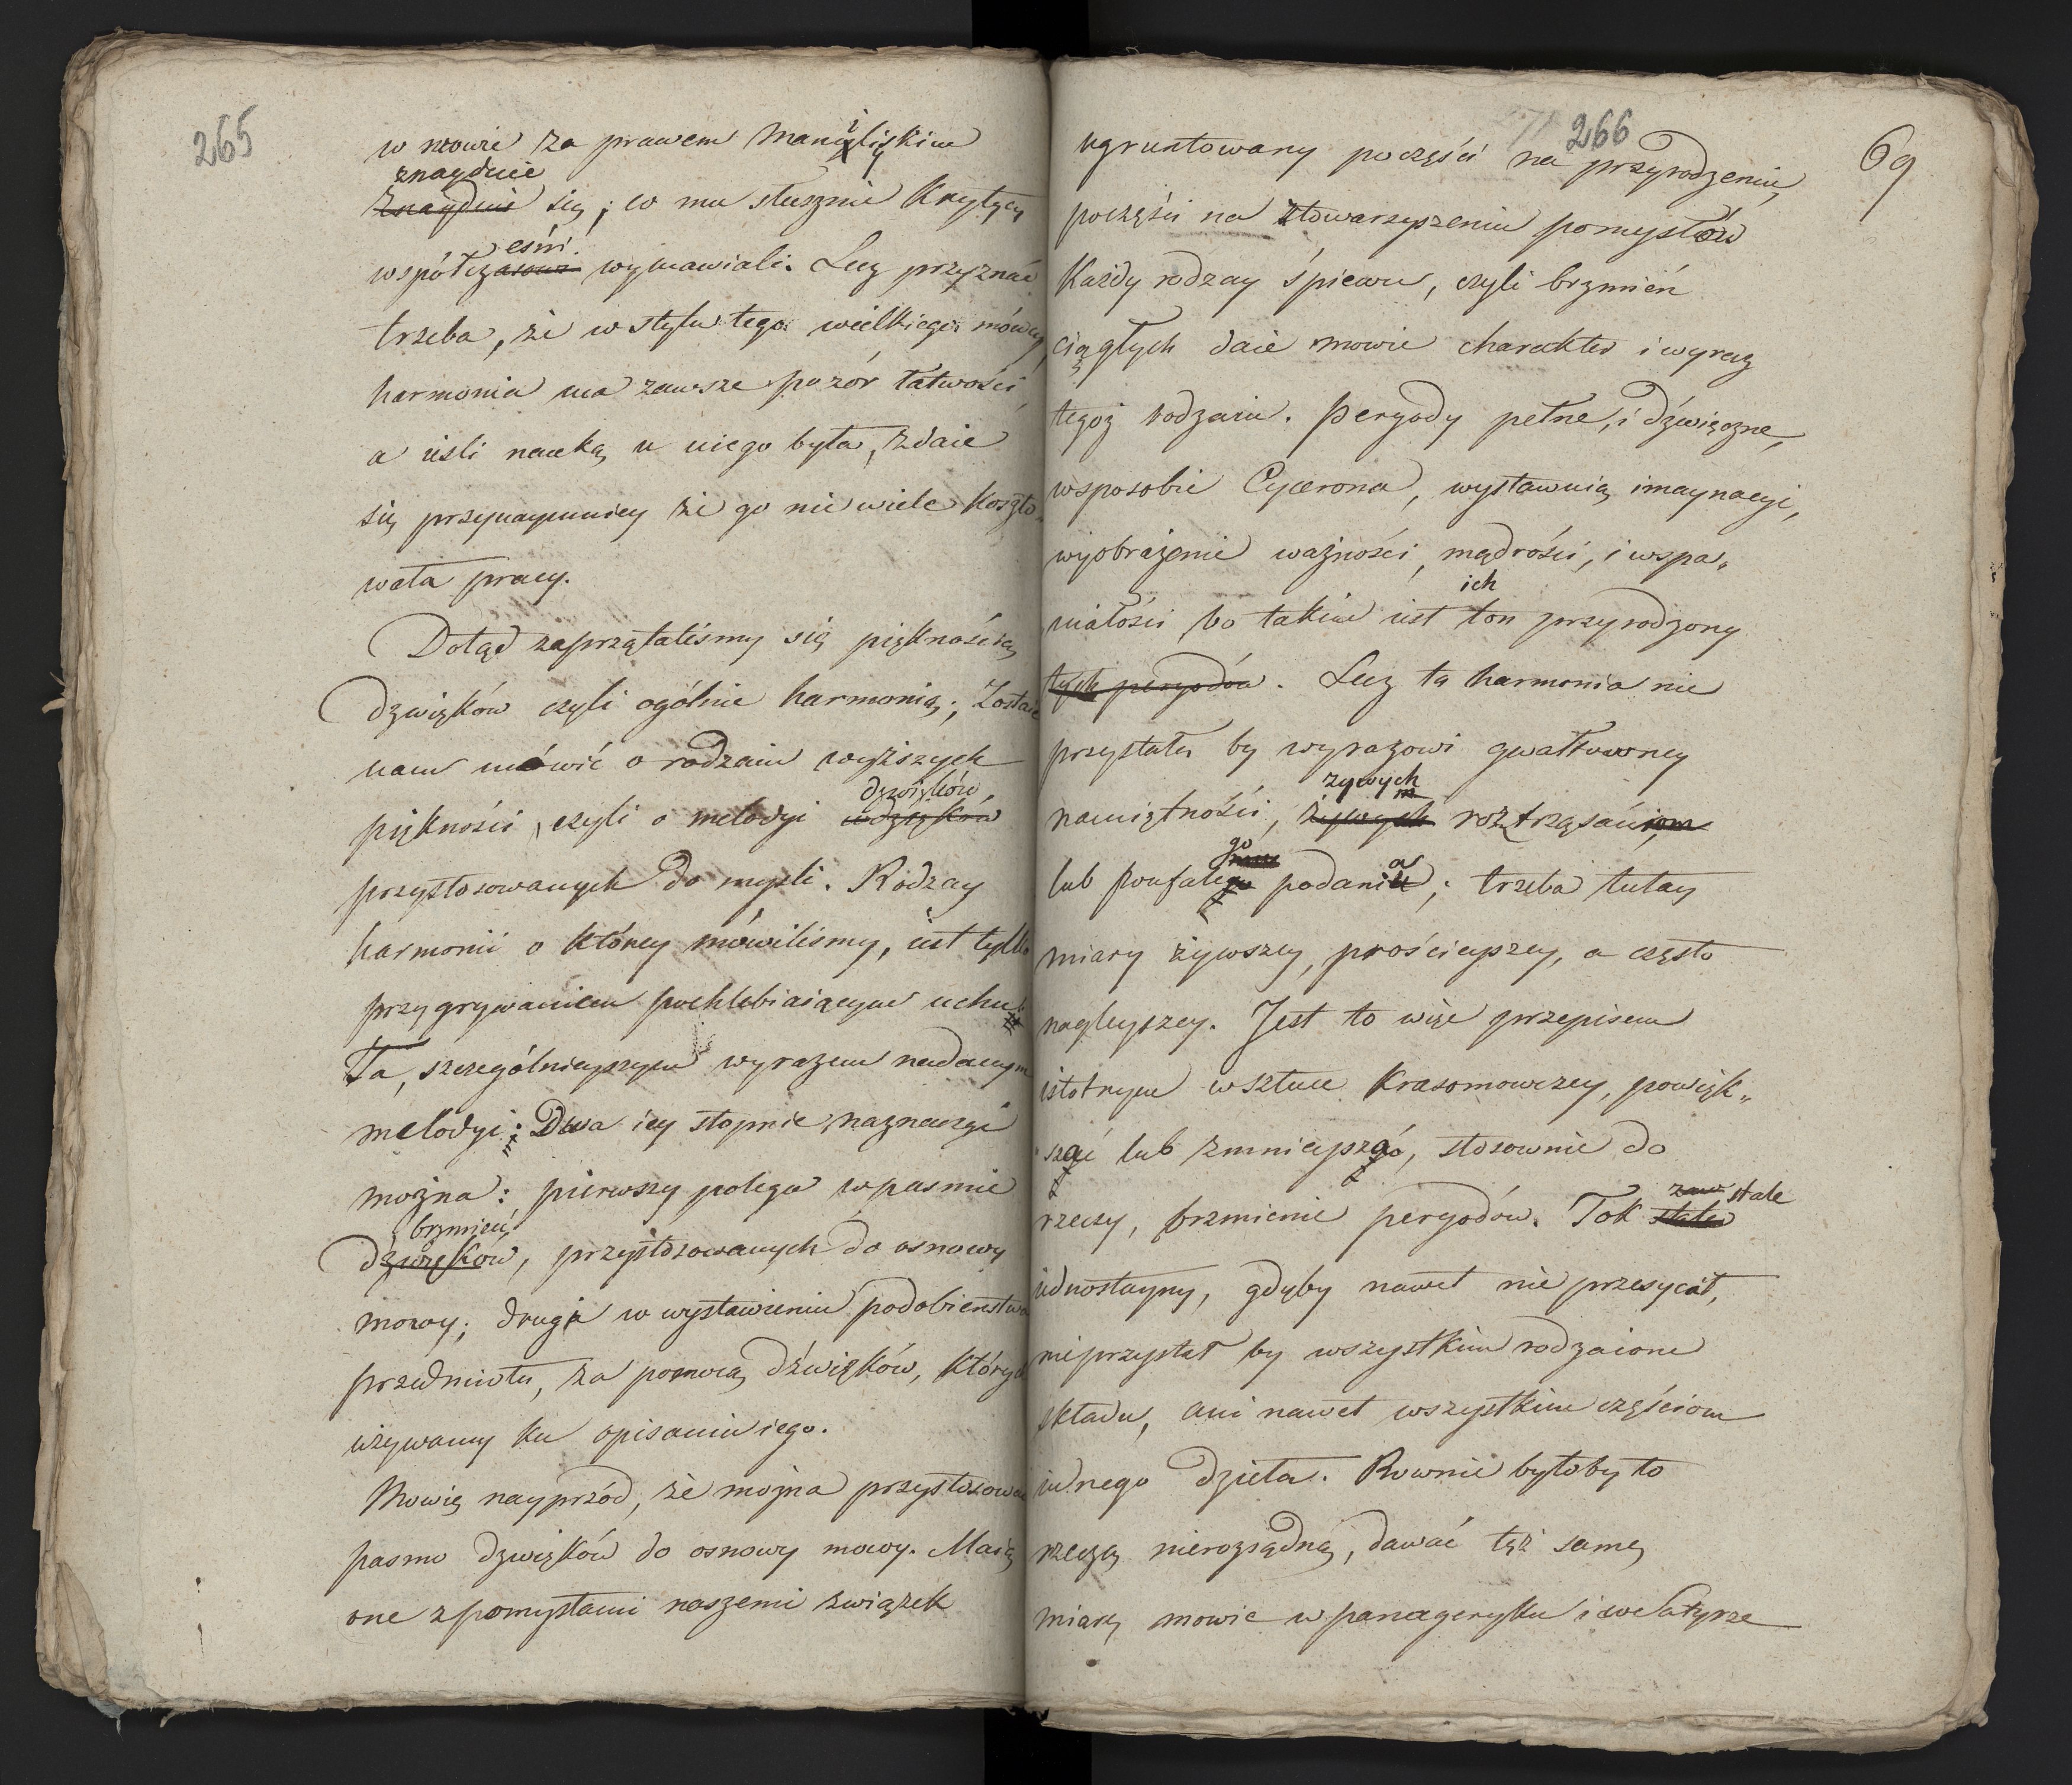 265
w mowie za prawem Maniliskim
znayduie
znayduie się; co mu słusznie Krytycy
eśni
współczasowi wymawiali. Lecz przyznać
trzeba, że w stylu tego wielkiego mówcy,
harmonia ma zawsze pozór łatwości,
a iesli nauką u niego była, zdaie
się przynaymniey że go nie wiele koszto„
wała pracy.
Dotąd zaprzątaliśmy się pięknością
dzwięków czyli ogólnie harmonią; Zostaie
nam mówić o rodzaiu wyższych
dzwięków,
piękności, czyli o melodyi wdzięków
przystosowanych do mysli. Rodzay
harmonii o którey mówiliśmy, iest tylko
przygrywaniem pochlebiaiącym uchu
Ta, szczególnieyszym wyrazem nadanym
melodyi: Dwa iey stopnie naznaczyć
można: pierwszy polega w pasmie
brzmień
dzwięków, przystosowanych do osnowy
mowy; drugi w wystawieniu podobieństwa
przedmiotu, za pomocą dźwięków, których
używamy ku opisaniu iego.
Mowię nayprzód, że można przystosować
pasmo dzwięków do osnowy mowy. Maią
one z pomysłami naszemi związek
266
69
ugruntowany poczęści na przyrodzeniu,
poczęści na stowarzyszeniu pomysłów
Każdy rodzay śpiewu, czyli brzmień
ciągłych daie mowie charakter i wyraz
tegoż rodzaiu. Peryody pełne, i dźwięczne,
wsposobie Cycerona, wystawuią imaynacyi,
wyobrażenie ważności, mądrości, i wspa„
ich
niałości bo takim iest ton przyrodzony
tych peryodów. Lecz ta harmonia nie
przystała by wyrazowi gwałtowney
żywych
namiętności, żywych roztrząsaniom
go
lub poufałego podania; trzeba tutay
miary żywszey, prościeyszey, a często
nagleyszey. Jest to więc przepisem
istotnym w sztuce Krasomowczey, powięk„
szać lub zmnieyszać, stosownie do
zaw stale
rzeczy, brzmienie peryodów. Tok stale
iednostayny, gdyby nawet nie przesycał,
nieprzystał by wszystkim rodzaiom
składu, ani nawet wszystkim częściom
iednego dzieła. Rownie byłoby to
rzeczą nierozsądną, dawać też samę
miarę mowie w panegeryku i we Satyrze